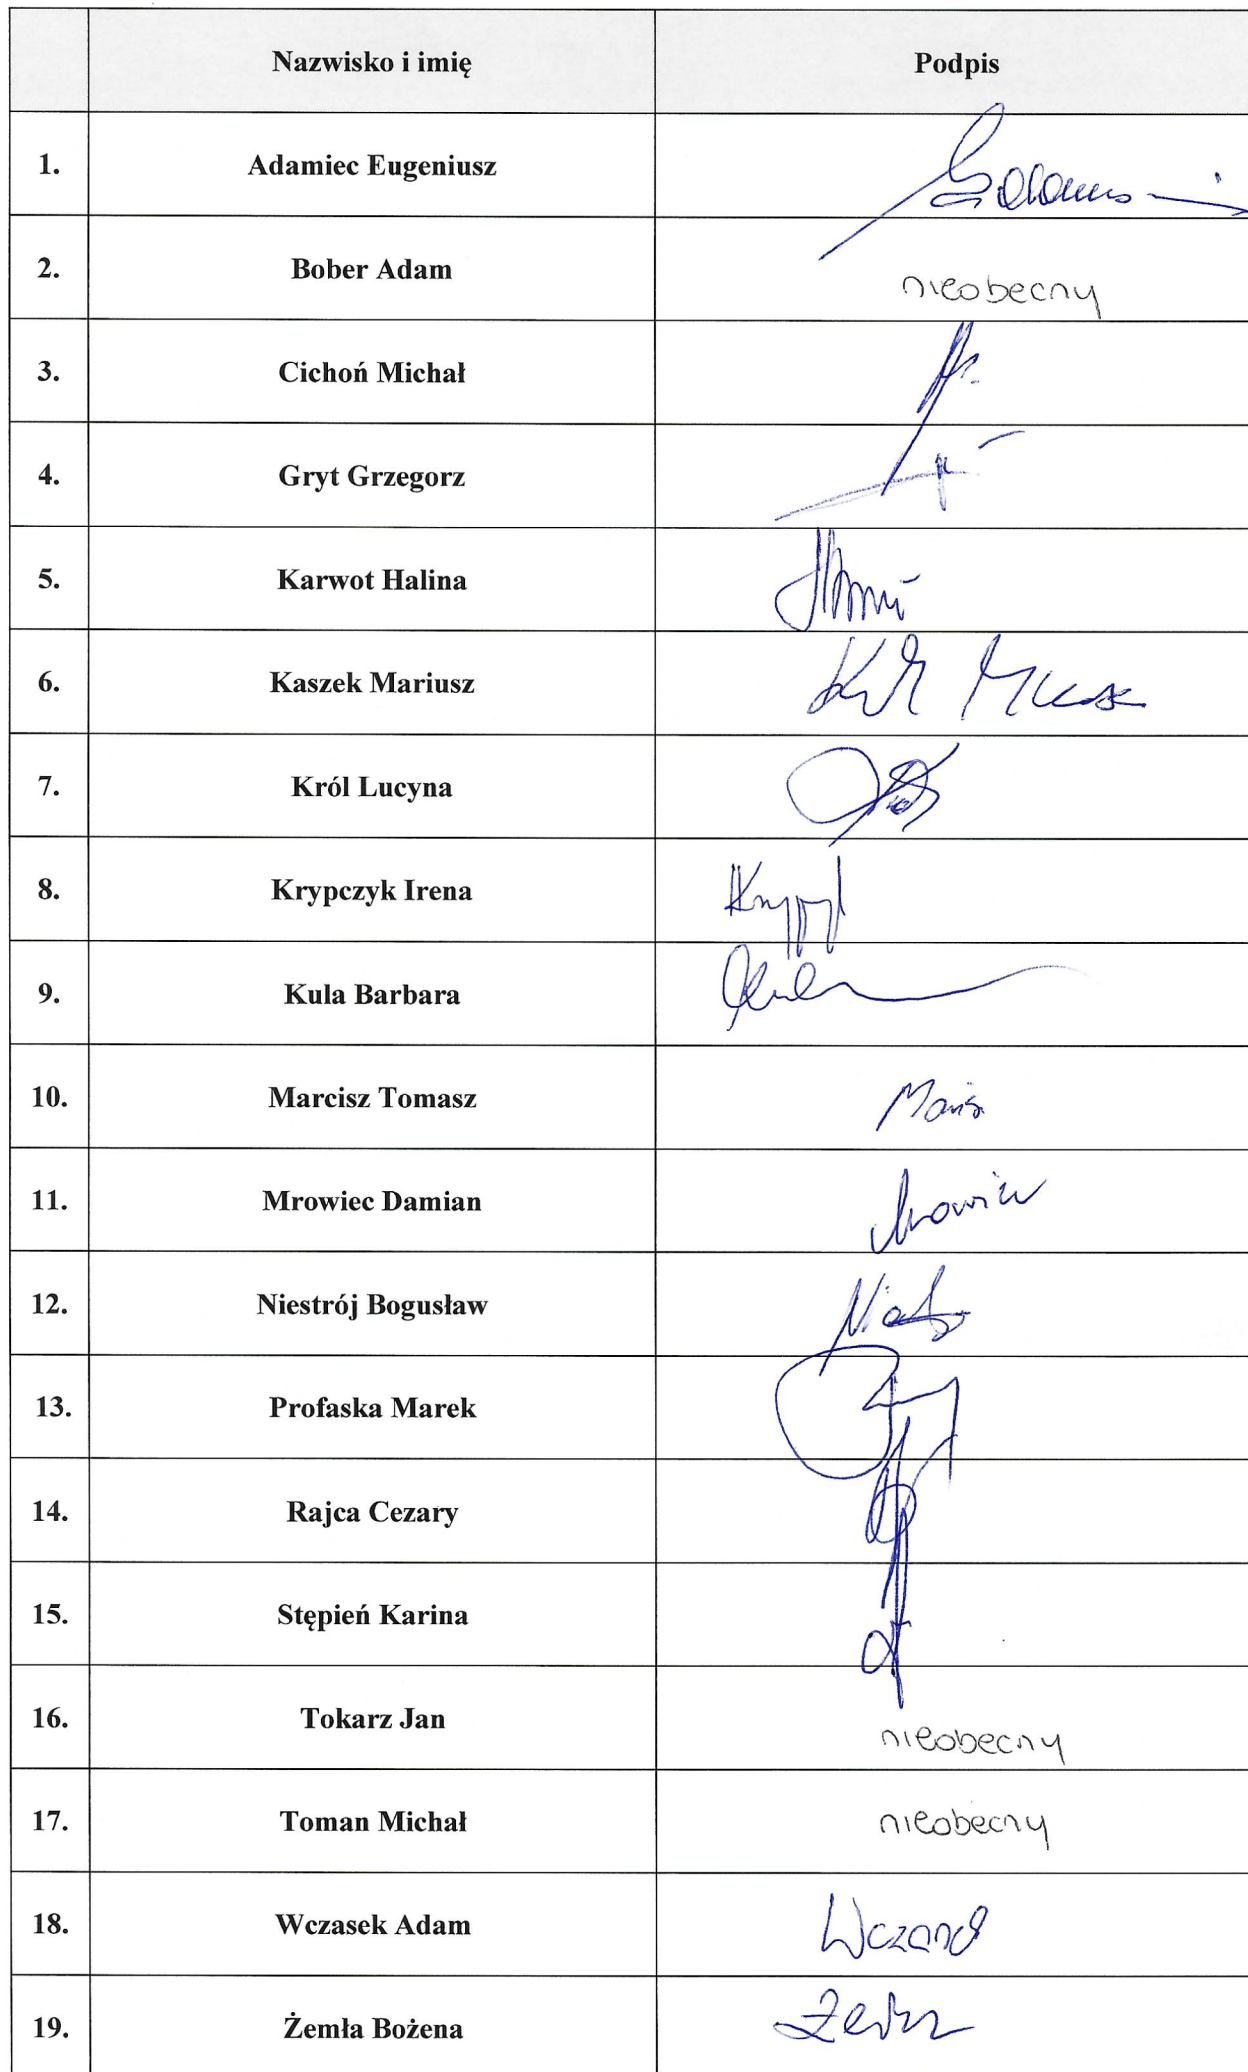 Nazwisko i imię Podpis
1. Adamiec Eugeniusz
2. Bober Adam nieobecny
3. Cichoń Michał
4. Gryt Grzegorz
5. Karwot Halina
6. Kaszek Mariusz
7. Król Lucyna
8. Krypczyk Irena
9. Kula Barbara
10. Marcisz Tomasz
11. Mrowiec Damian
12. Niestrój Bogusław
13. Profaska Marek
14. Rajca Cezary
15. Stępień Karina
16. Tokarz Jan nieobecny
17. Toman Michał nieobecny
18. Wczasek Adam
19. Żemła Bożena